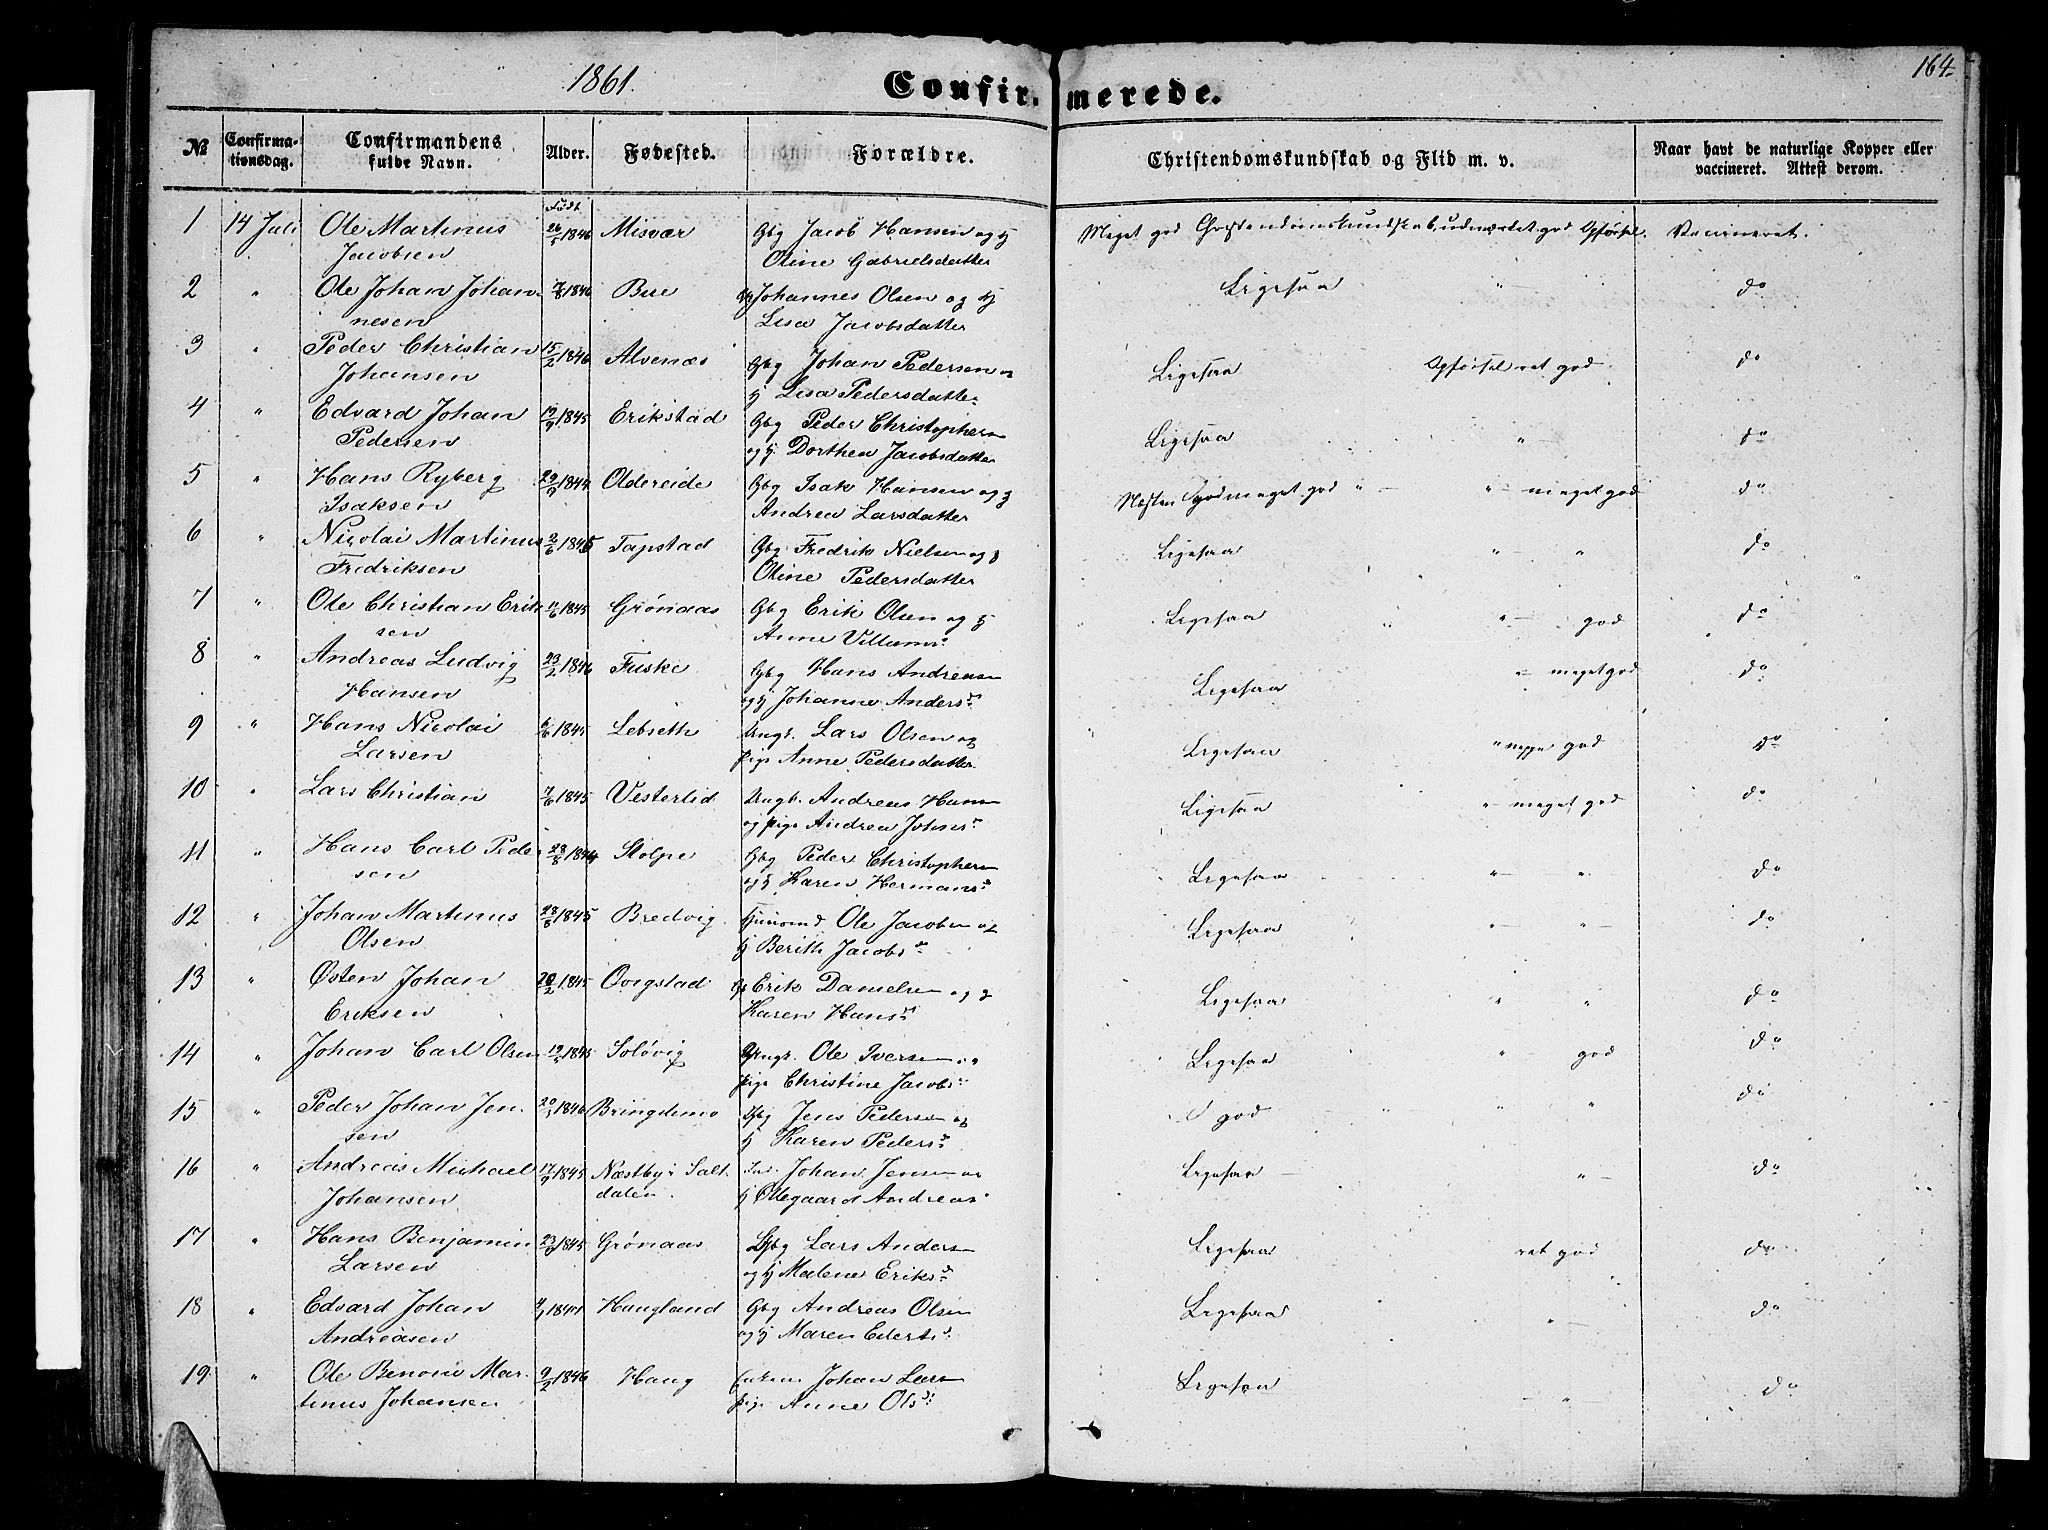 1861.
Confirmerede.
164.
№ Confirmationsdag. Confirmandens fulde Navn. Alder. Fødested. Forældre. Christendomskundskab og Flid m. v. Naar havt de naturlige Kopper eller vaccineret. Attest derom.
Født
1 14 Juli Ole Martinus 26/5 1846 Misvær Gbg Jacob Hansen og H Meget god Christendomskundskab, udmærket god Opførsel. Vaccineret.
Jacobsen Oline Gabrielsdatter
2 " Ole Johan Johan- 7/8 1846 Bue Johannes Olsen og H Ligesaa " do
nesen Lisa Jacobsdatter
3 " Peder Christian 15/2 1846 Alvenæs Gbg Johan Pedersen og Ligesaa Opførsel ret god. do
Johansen H Lisa Pedersdatter
4 " Edvard Johan 19/9 1845 Erikstad Gbg Peder Christophers Ligesaa " do
Pedersen og H Dorthea Jacobsdatter
5 " Hans Ryberg 29/9 1844 Oldereide Gbg Isak Hansen og H Næsten meget god " " meget god do
Isaksen Andrea Larsdatter
6 " Nicolai Martinus 2/6 1845 Tapstad Gbg Fredrik Nielsen og H Ligesaa " " do
Fredriksen Oline Pedersdatter
7 " Ole Christian Erik 1845 Grønaas Gbg Erik Olsen og H Ligesaa " " god do
sen Anne Villums
8 " Andreas Ludvig 23/2 1846 Fuske Gbg Hans Andreasen Ligesaa " meget god do
Hansen og H Johanne Anders
9 " Hans Nicolai 6/6 1845 Lebseth Ungk. Lars Olsen og Ligesaa " god do
Larsen Pige Anne Pedersdatter
10 " Lars Christian 7/6 1845 Vesterlid Ungk. Andreas Hans Ligesaa " meget god do
og Pige Andrea Johns
11 " Hans Carl Peder 28/8 1844 Stolpe Gbg Peder Christophers Ligesaa " " do
sen og H Karen Hermans
12 " Johan Martinus 28/6 1845 Bredvig Ole Jacobsen og Ligesaa " " do
Olsen H Berith Jacobs
13 " Østen Johan 20/2 1845 Gb Erik Danielsen og H Ligesaa " " do
Eriksen Karen Hans
14 " Johan Carl Olsen 19/5 1845 Soløvig Ungk. Ole Iversen og Ligesaa " god do
Pige Christine Jacobs
15 " Peder Johan Jen 1846 Bringslimo Gbg Jens Pedersen og god " " " do
sen H Karen Peders
16 " Andreas Michael 17/9 1845 Næstby i Salt Johan Jensen og Ligesaa " do
Johansen dalen. H Ollegaard Andreas
17 " Hans Benjamin 1845 Grønaas Gbg Lars Anders Ligesaa ret god do
Larsen og H Malene Eriks
18 " Edvard Johan Haugland Gbg Andreas Olsen Ligesaa " do
Andreasen og H Maren
19 " Ole Benoni Mar- 9/2 1846 Haug Johan Lars Ligesaa " do
tinus Johansen Pige Anne Ols